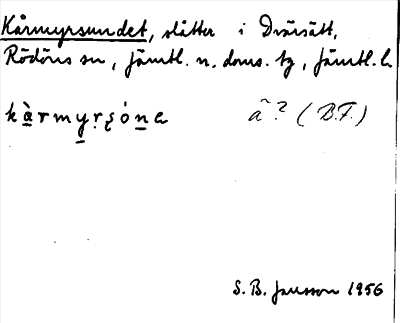 Kårmyrsundet, slåtter i Dvärsätt,
Rödöns sn, Jämtl. n. doms. tg, Jämtl. l.
kàrmyrsóna â? (B.F.)
S. B. Jansson 1956